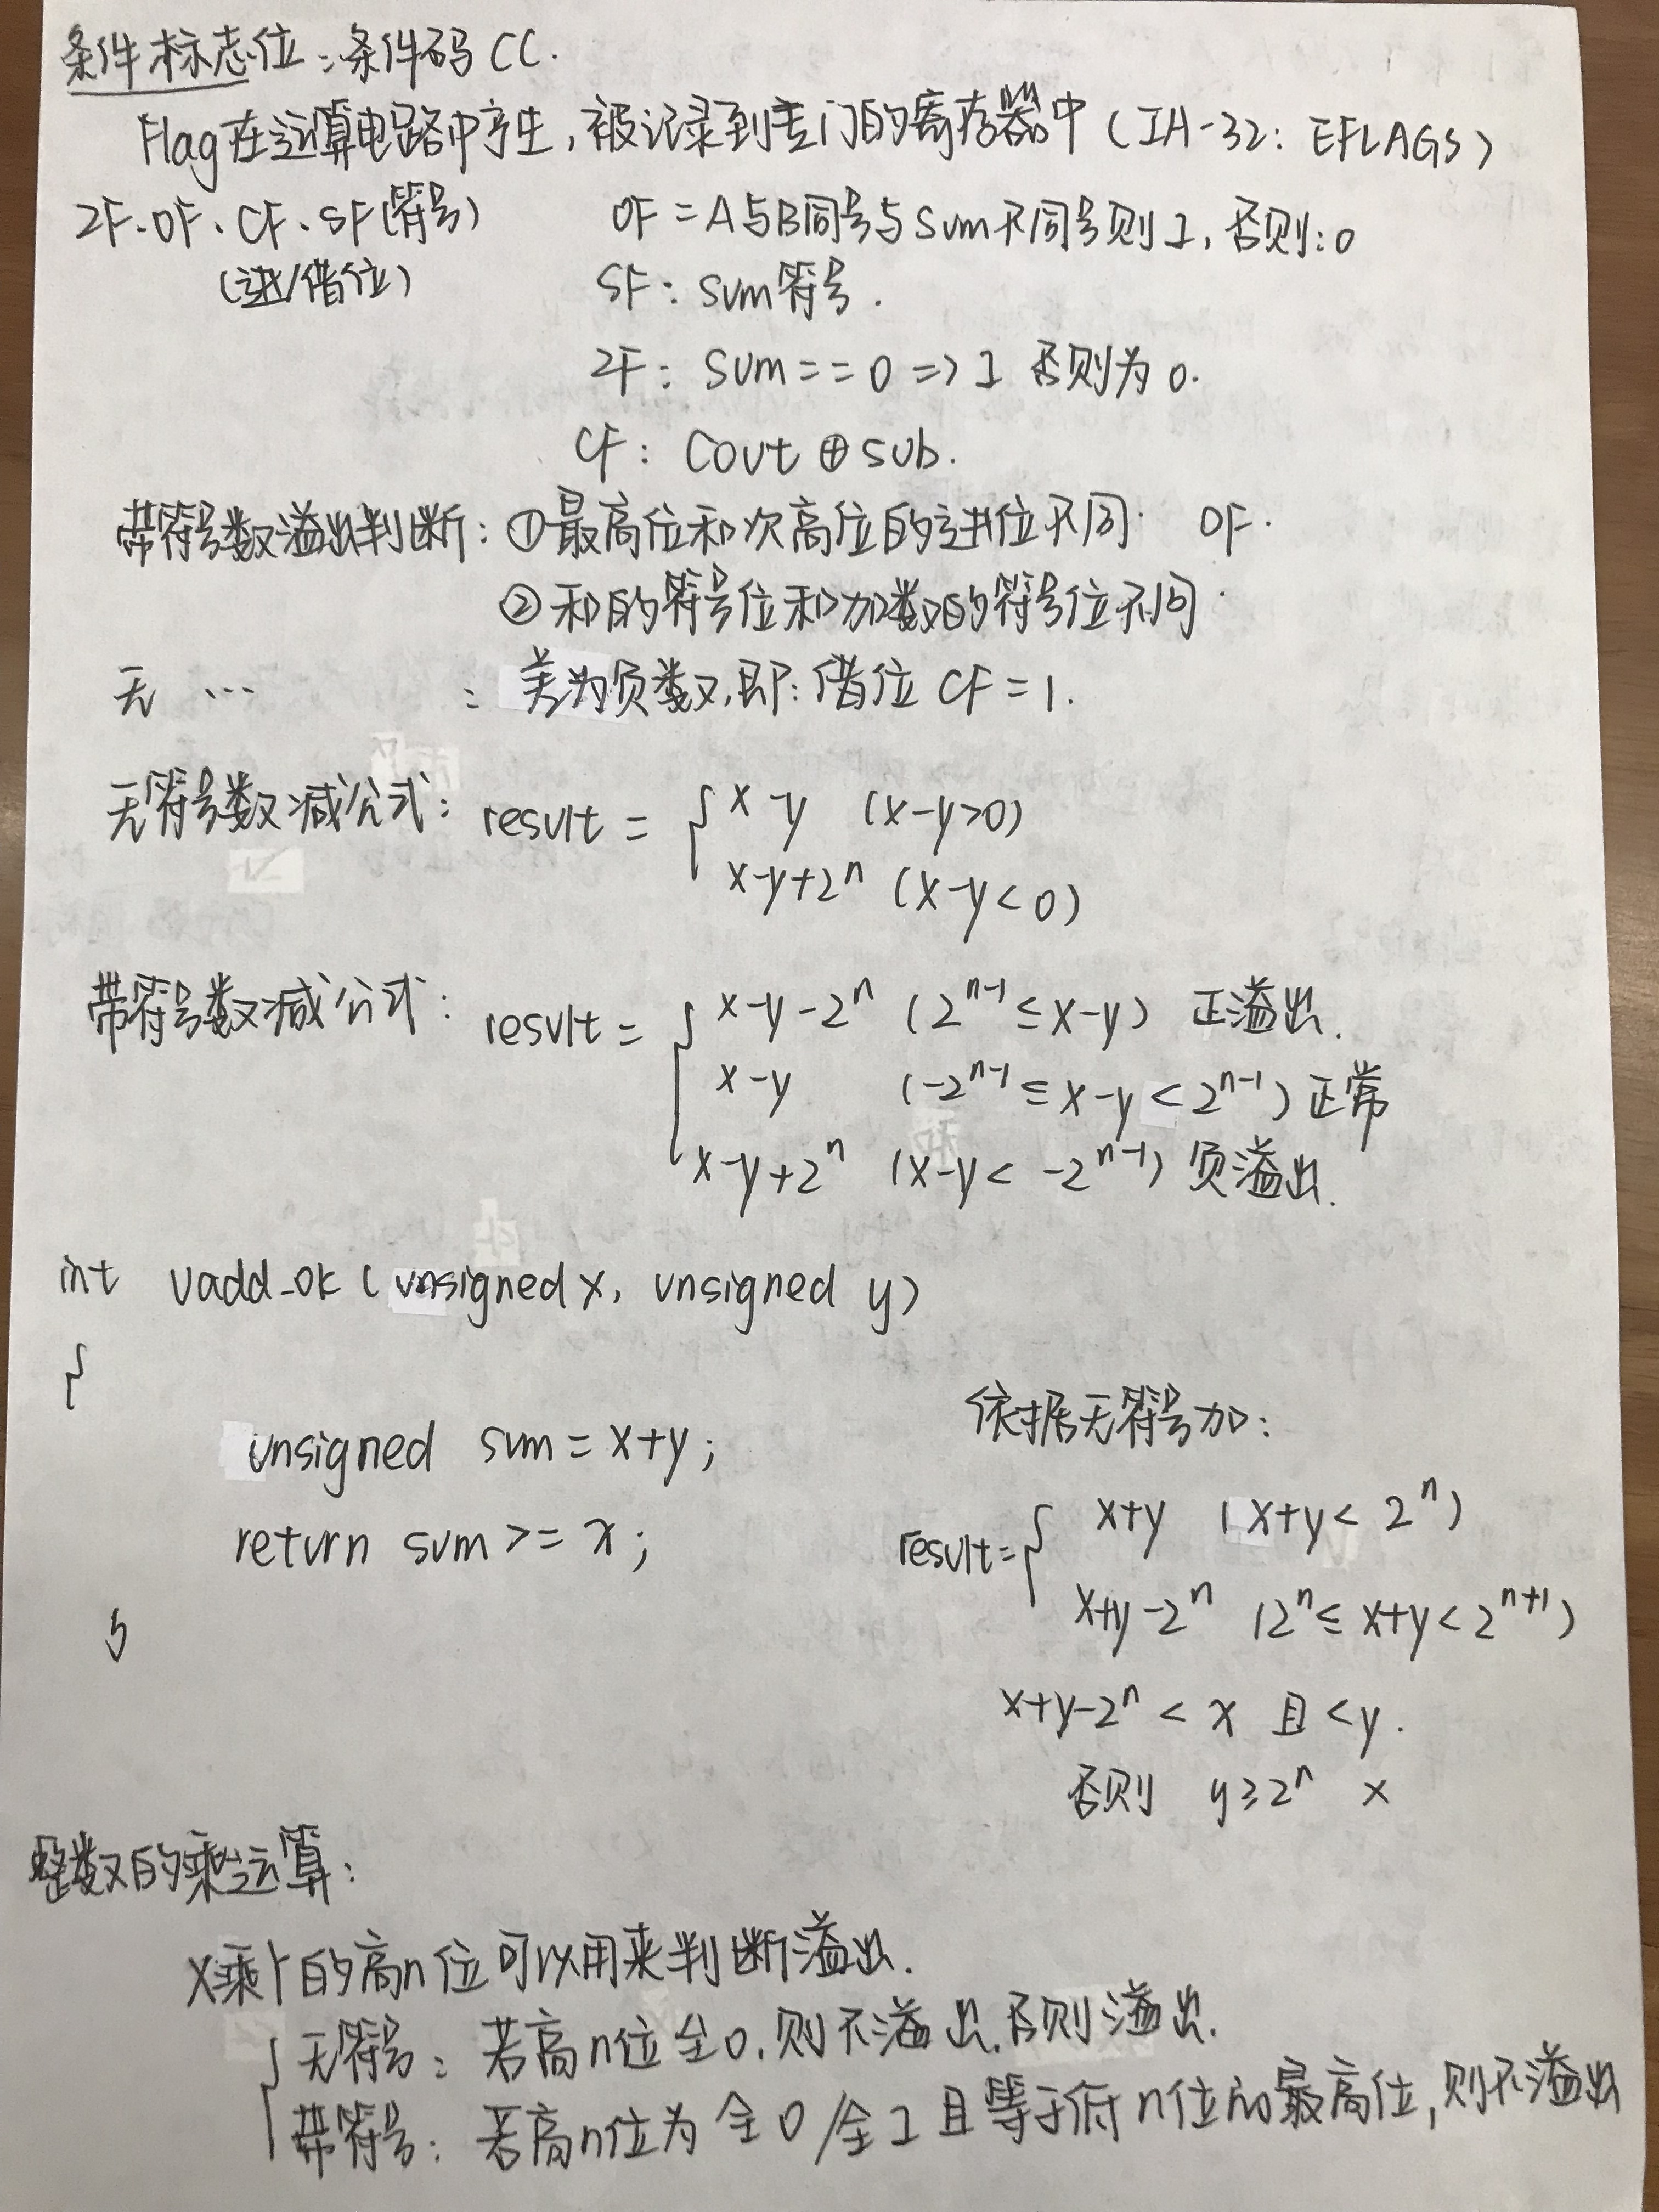 条件标志位：条件码 CC.
Flag在运算电路中产生，被记录到专门的寄存器中（IA-32: EFLAGS）
ZF、OF、CF、SF(符号)
(进/借位)
OF = A与B同号与Sum不同号则1，否则：0
SF： sum符号.
ZF： sum == 0 => 1 否则为0.
CF： Cout ⊕ sub.
带符号数溢出判断：①最高位和次高位的进位不同. OF.
②和的符号位和加数的符号位不同.
无 … ：差为负数，即：借位 CF = 1.
无符号数减公式： result = { x-y (x-y>0)
x-y+2^n (x-y<0)
带符号数减公式： result = { x-y-2^n (2^{n-1} ≤ x-y) 正溢出.
x-y (-2^{n-1} ≤ x-y < 2^{n-1}) 正常
x-y+2^n (x-y < -2^{n-1}) 负溢出.
int uadd_ok (unsigned x, unsigned y)
{
unsigned sum = x+y;
return sum >= x;
}
依据无符号加：
result = { x+y (x+y < 2^n)
x+y-2^n (2^n ≤ x+y < 2^{n+1})
x+y-2^n < x 且 < y.
否则 y ≥ 2^n ×
整数的乘运算：
X乘Y的高n位可以用来判断溢出.
{ 无符号：若高n位全0，则不溢出，否则溢出.
带符号：若高n位为全0/全1且等于低n位的最高位，则不溢出